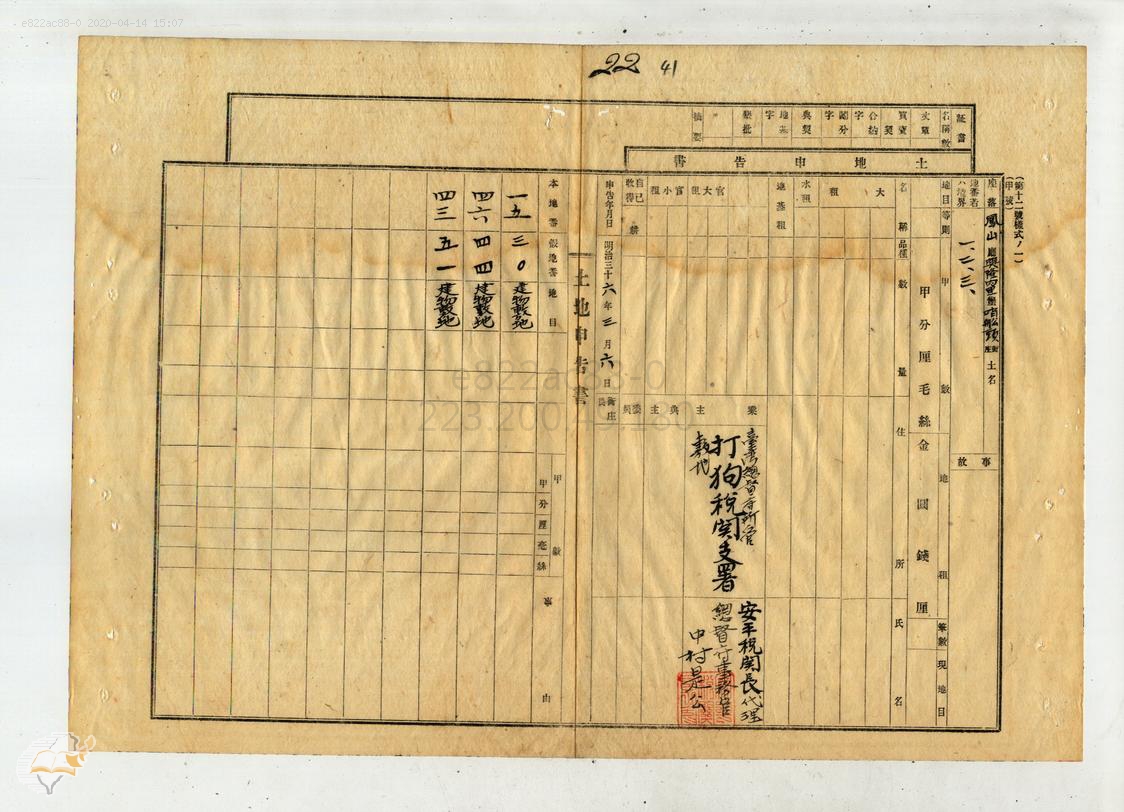 e822ac88-0 2020-04-14 15:07
22 41
(第十二號樣式ノ一)
(甲號)
証書
名稱
丈單
買賣契
合約字
鬮分字
典契
地基字
墾批
摘要
土地申告書
座落 鳳山廳興隆內里堡哨船頭街庄土名
一、二、三、
事故
地目等則
甲數
地租
筆數現地目
甲分厘毛絲
金圓錢厘
名稱
品種
數量
住所
氏名
大租
水租
地基租
官大租
官小租
自己收得
業主
典主
臺灣總督府所管
打狗稅關支署
敷地
安平稅關長代理
總督府事務官
中村是公
申告年月日 明治三十六年三月六日
街庄長
土地申告書
本地番
假地番
地目
甲數
甲分厘毫絲
事由
一五 三〇 建物敷地
四六 四四 建物敷地
四三 五一 建物敷地
e822ac88-0